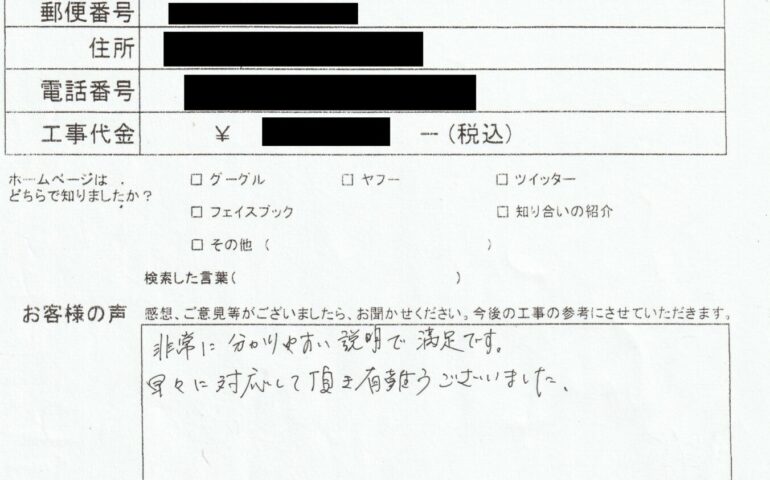 郵便番号
住所
電話番号
工事代金 ¥ ー(税込)
ホームページは
どちらで知りましたか?
□ グーグル □ ヤフー □ ツイッター
□ フェイスブック □ 知り合いの紹介
□ その他 ( )
検索した言葉( )
お客様の声 感想、ご意見等がございましたら、お聞かせください。今後の工事の参考にさせていただきます。
非常に分かりやすい説明で満足です。
早々に対応して頂き有難うございました。